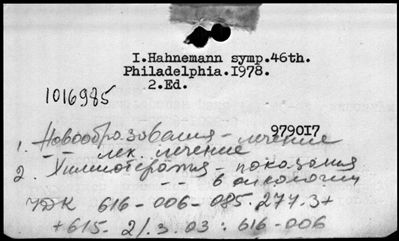 I.Hahnemann symp.46th.
Philadelphia.I978.
2.Ed.
1016985
979017
1. Новообразования - лечение
- - лек. лечение
2. Химиотерапия - показания
- - в онкологии
УДК 616-006-085.277.3+
+615-2/3.03:616-006